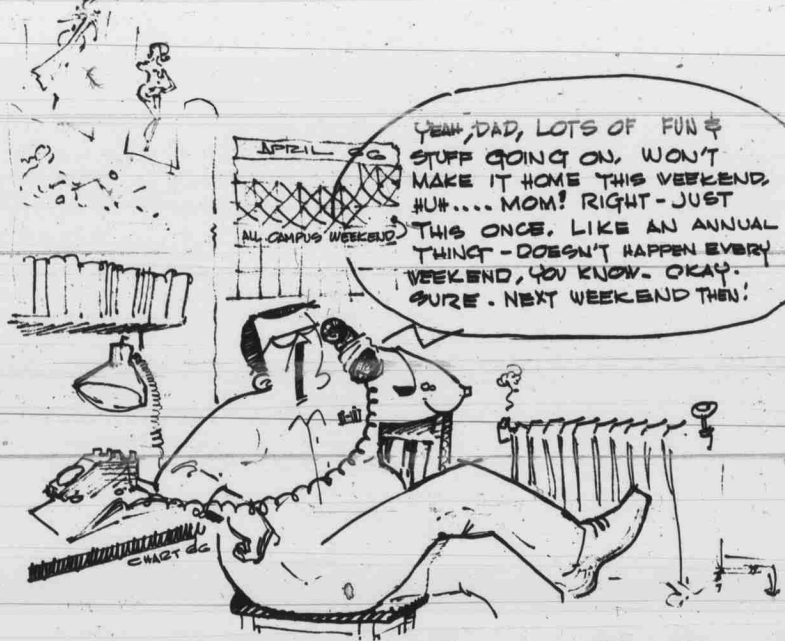 APRIL 66
ALL CAMPUS WEEKEND
YEAH, DAD, LOTS OF FUN &
STUFF GOING ON. WON'T
MAKE IT HOME THIS WEEKEND.
HUH.... MOM! RIGHT - JUST
THIS ONCE. LIKE AN ANNUAL
THING - DOESN'T HAPPEN EVERY
WEEKEND, YOU KNOW. OKAY.
SURE. NEXT WEEKEND THEN!
CHART 66